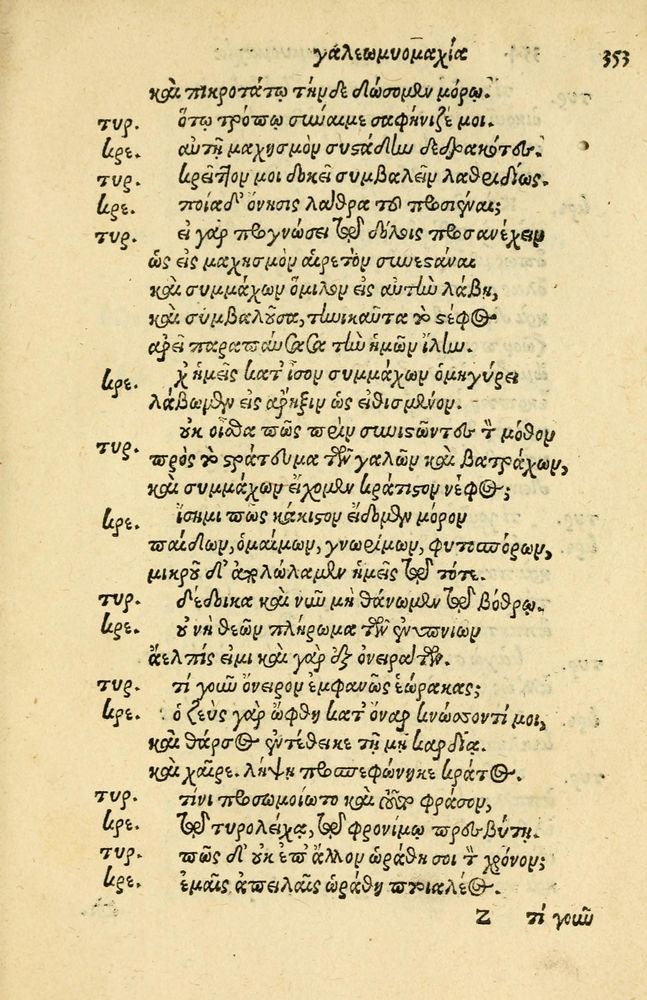 γαλεωμυομαχία 353
καὶ πικροτάτῳ τήνδε δώσομεν μόρῳ.
τυρ. ὅτῳ τρόπῳ σύναιμε σαφήνιζέ μοι.
κρε. αὐτῇ μαχησμὸν συστάδην δεδρακότες.
τυρ. κρεῖττον μοι δοκεῖ συμβαλεῖν λαθριδίως.
κρε. ποία δ' ὄνησις λάθρα τοῦ
τυρ. εἰ γὰρ προγνώσει τοῦ δόλοις προσανέχειν
ὡς εἰς μαχησμὸν αἱρετὸν συνεστάναι
καὶ συμμάχων ὅμιλον εἰς αὐτὴν λάβῃ,
καὶ συμβαλοῦσα, τηνικαῦτα τὸ στέφος
αἴρει παραπάντα τὴν ἡμῶν ἴλην.
κρε. χ' ἡμεῖς κατ' ἶσον συμμάχων ὁμηγύρει
λάβωμεν εἰς ἄρηξιν ὡς εἰθισμένον.
τυρ. οὐκ οἶσθα πῶς πρὶν συνιστῶντες τὸν μόθον
πρὸς τὸ στράτευμα τῶν γαλῶν καὶ βατράχων,
καὶ συμμάχων εἴχομεν κράτιστον νέφος;
κρε. ἴσημι πῶς κάκιστον εἴδομεν μόρον
παίδων, ὁμαίμων, γνωρίμων, φυτοσπόρων,
μικροῦ δ' ἀπολώλαμεν ἡμεῖς τοῦ τότε.
τυρ. δέδοικα καὶ νῦν μὴ θάνωμεν τοῦ βόθρῳ.
κρε. οὐ νὴ θεῶν πλήρωμα τῶν ἐνυπνίων
ἄελπίς εἰμι καὶ γὰρ ἐξ ὀνειράτων.
τυρ. τί γοῦν ὄνειρον ἐμφανῶς ἑώρακας;
κρε. ὁ ζεὺς γὰρ ὤφθη κατ' ὄναρ κνώσσοντί μοι,
καὶ θάρσος ἐντέθεικε τῇ μῇ καρδίᾳ.
καὶ χαῖρε. λήψῃ προσπεφώνηκε κράτος.
τυρ. τίνι προσωμοίωτο καὶ τοῦτο φράσον,
κρε. τῷ τυρολείχᾳ, τῷ φρονίμῳ πρεσβύτῃ.
τυρ. πῶς δ' οὐκ ἐπ' ἄλλον ὡράθη σοι τὸν χρόνον;
κρε. ἐμαῖς ἀπειλαῖς ὡράθη πτοιαλέος.
Z τί γοῦν